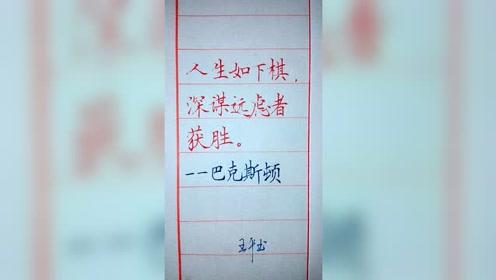 人生如下棋,
深谋远虑者
获胜。
--巴克斯顿
王平书